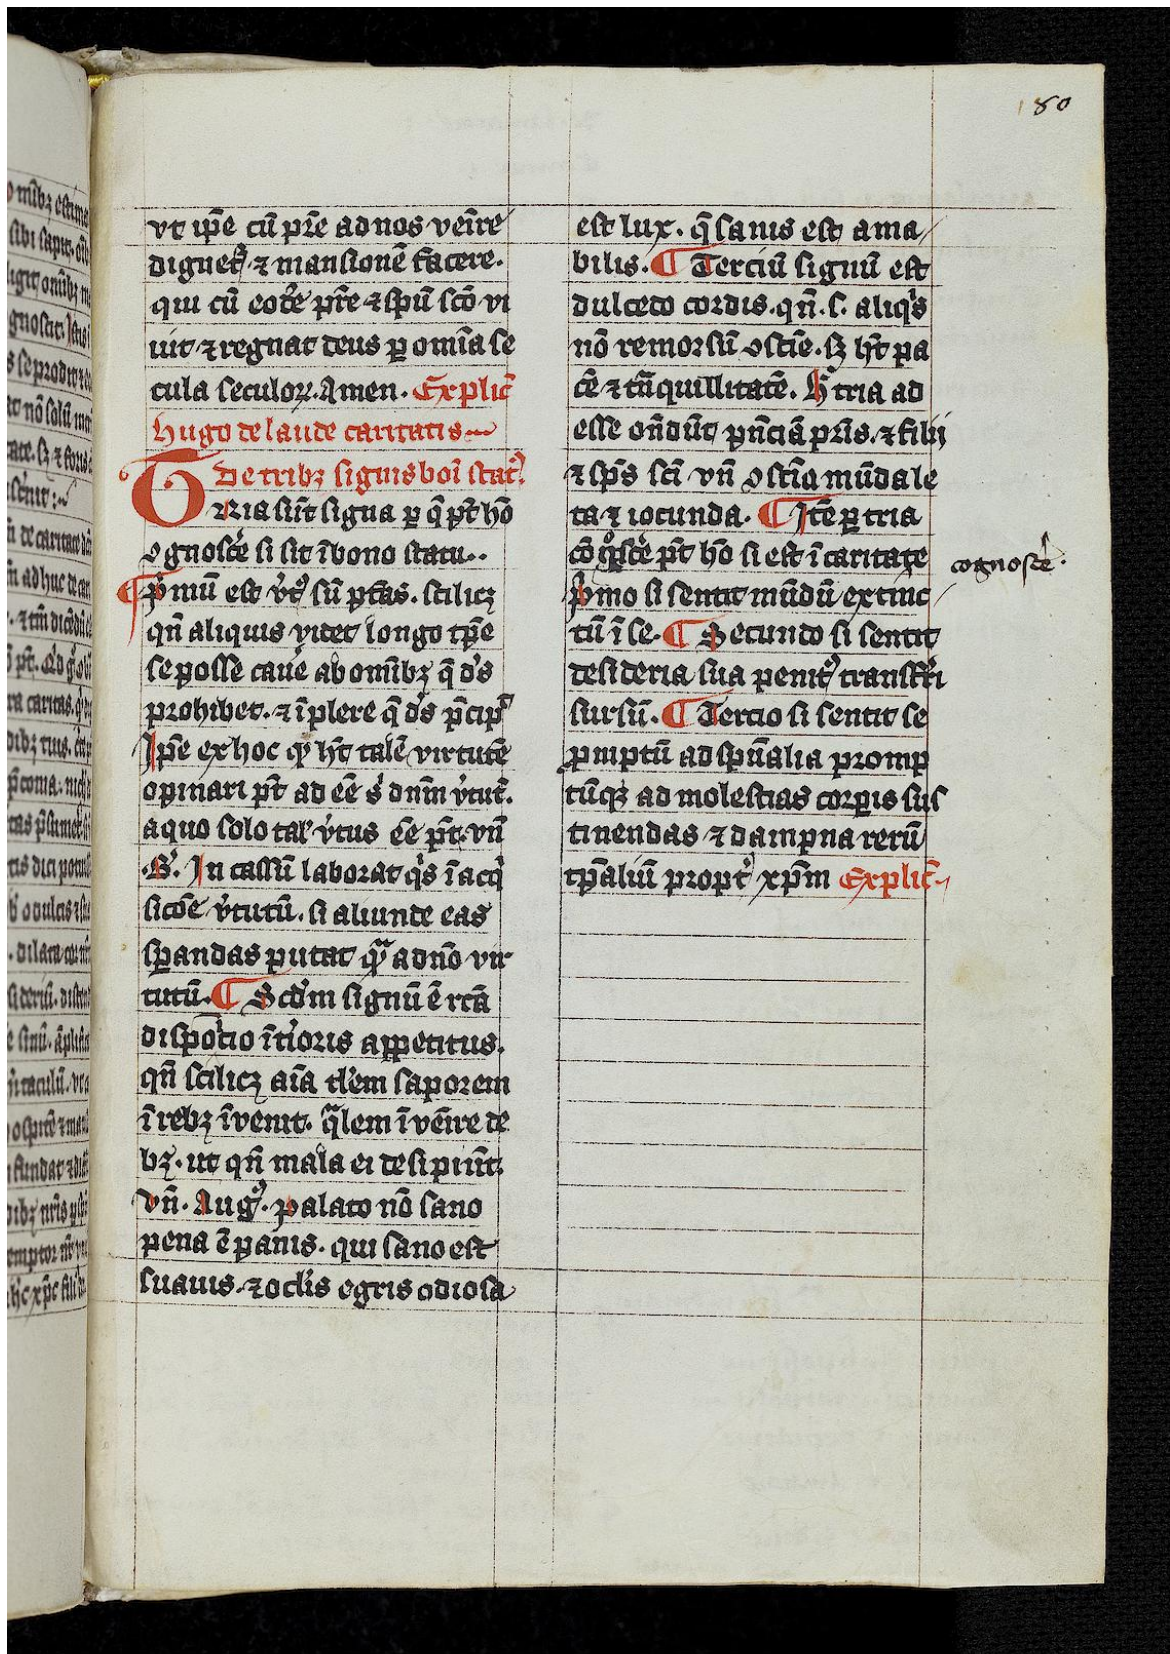 180
vt ip̄e cū pr̄e ad nos ven̄re
dignet᷒ ⁊ mansionē facere.
qui cū eod̄e pr̄e ⁊ sp̄u sc̄o vi
uit ⁊ regnat deus ꝑ om̄ia se
cula seculoꝝ. Amen. Explic̄
hugo de laude caritatis
De tribꝫ signis boni stat᷒.
TRia sūt signa ꝑ q̄ pt̄ hō
ꝯgnosc̄e si sit ī bono statu..
¶ P̄mū est v̓t᷒ sū ptās. scilicꝫ
qn̄ aliquis videt longo tp̄e
se posse cauē ab om̄ibꝫ q̄ d̓s
prohibet. ⁊ īplere q̄ d̓s p̄cip̄
Ip̄e ex hoc ꝙ hȳ talē virtutē
opinari pt̄ ad eē s̓ dn̄m v̓tut̄.
a quo solo tal̓ v̓tus eē pt̄. vn̄
.B̓. In cassū laborat q̓s ī acq̓
sic̄oe v̓tutū. si aliunde eas
sꝑandas putat q̄ᵃ a dn̄o vir
tutū. ¶ Scd̓m signū ē rc̄a
dispōtio īt̓ioris appetitus.
qn̄ scilicꝫ aīa tl̓em saporem
ī rebꝫ īvenit. q̄lem īvēire de
bꝫ. ut qn̄ mala ei desipiūt.
vn̄. Aug᷒. palato nō sano
pena ē panis. qui sano est
suauis. ⁊ oclis egris odiosa
est lux. q̄ sanis est ama
bilis. ¶ Terciū signū est
dulcedo cordis. qn̄. s. aliq̓s
nō remorsū ꝯscīe. sꝫ hȳ pa
cē ⁊ tn̄quillitatē. H̄ tria ad
esse on̄dūt pn̄ciā pr̄is. ⁊ filij
⁊ sp̄s sc̄i vn̄ ꝯscīa mūda le
ta ⁊ iocunda. ¶ Itē ꝑ tria
cōgosc̄e pt̄ hō si est ī caritate
cognosc̄e.
P̓mo si sentit mūdū extinc
tū ī se. ¶ Secundo si sentit
desideria sua penit᷒ transfr̄i
sursū. ¶ Tercio si sentit se
ꝓmptū ad sp̄ualia promp
tūqꝫ ad molestias corꝑis sus
tinendas ⁊ dampna rerū
tp̄aliū propt̓ xp̄m Explic̄